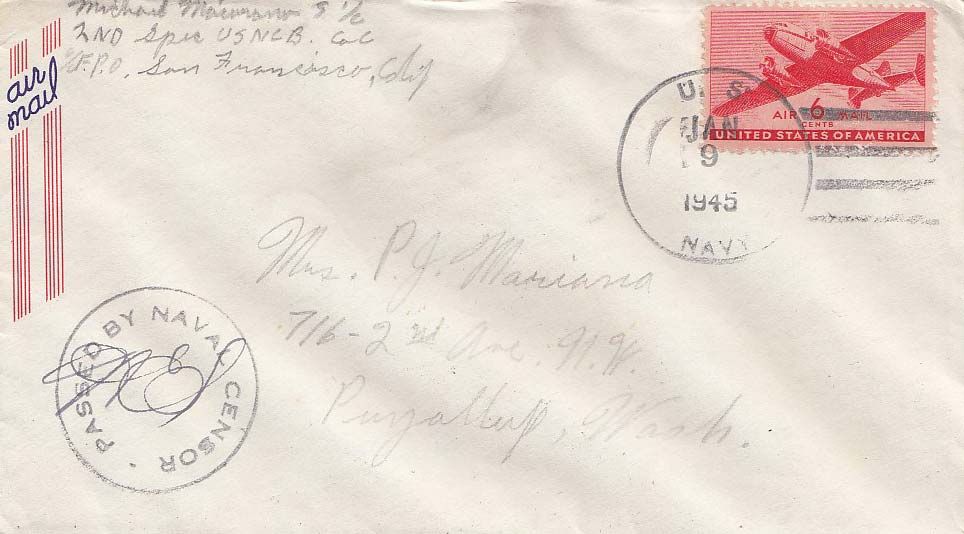 Michael Maiorano S 1/c
2ND Spec USNCB. CoC
F.P.O. San Francisco, Calif
air
mail
AIR 6 MAIL
CENTS
UNITED STATES OF AMERICA
U. S.
JAN
9
1945
NAVY
Mrs. P. J. Mariana
716-2nd Ave. N.W.
Puyallup, Wash.
PASSED BY NAVAL CENSOR